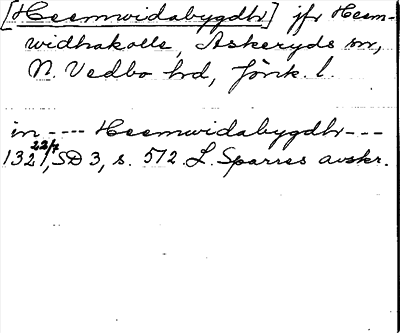 [Heemwidabygdhr] jfr Heem-
widhakolle, Askeryds sn,
N. Vedbo hd, Jönk. l.
in ---- Heemwidabygdhr ---
1321 22/7, SD 3, s. 572. L. Sparres avskr.